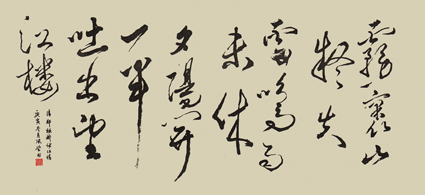 霧裹山
疑失
雷鳴雨
未休
夕陽開
一半
吐出望
江樓